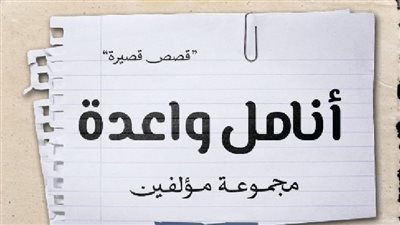 ”قصص قصيرة“
أنامل واعدة
مجموعة مؤلفين